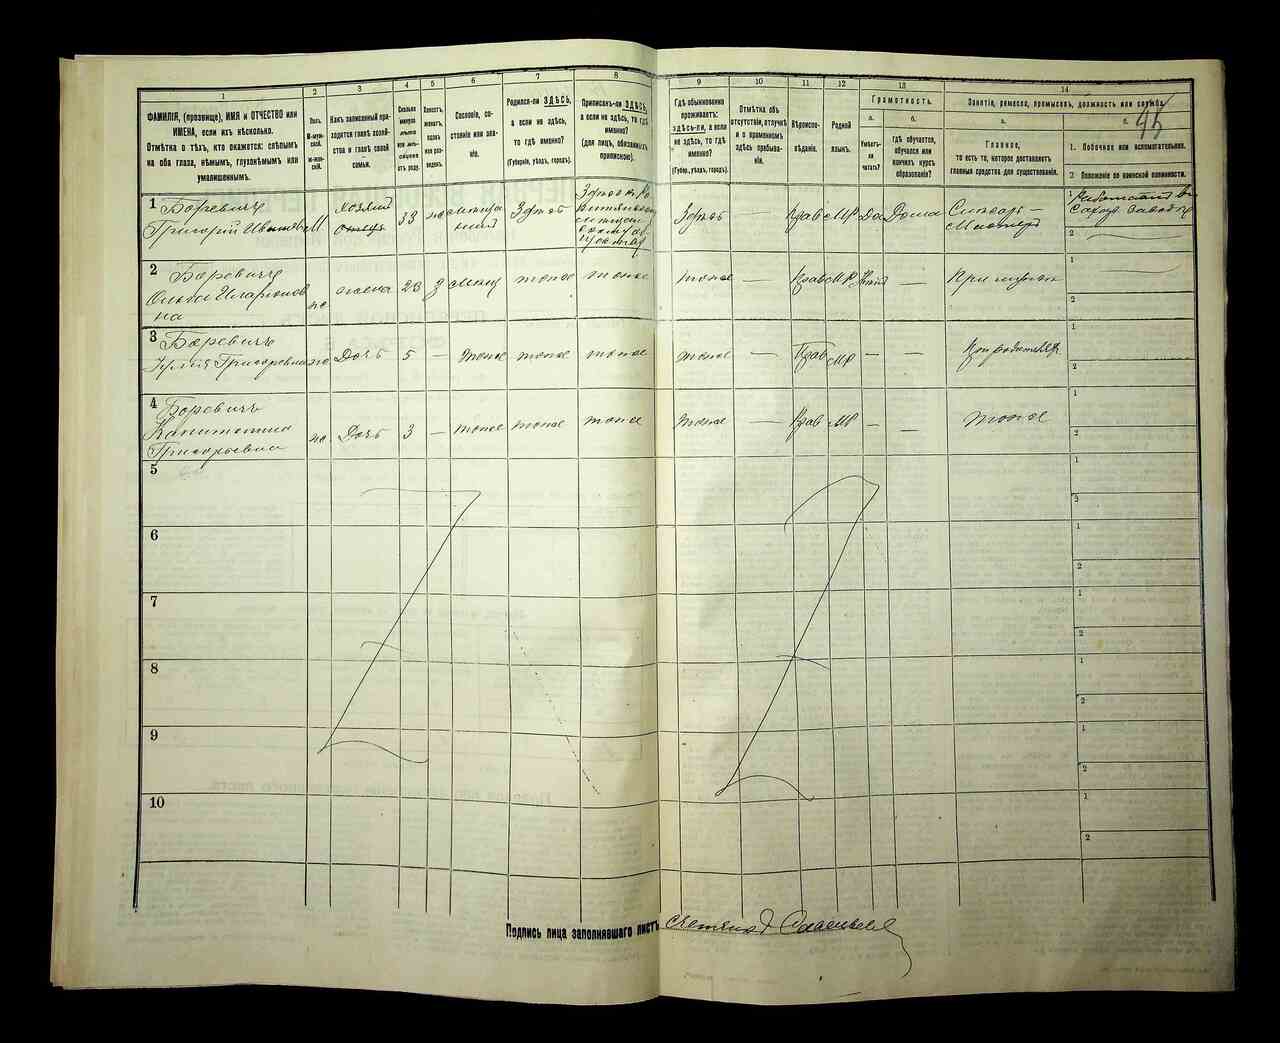 1 2 3 4 5 6 7 8 9 10 11 12 13 14
ФАМИЛІЯ, (прозвище), ИМЯ и ОТЧЕСТВО или
ИМЕНА, если ихъ нѣсколько.
Отмѣтка о тѣхъ, кто окажется: слѣпымъ
на оба глаза, нѣмымъ, глухонѣмымъ или
умалишеннымъ.
Полъ.
М-муж-
ской.
Ж-жен-
скій.
Какъ записанный при-
ходится главѣ хозяй-
ства и главѣ своей
семьи.
Сколько
минуло
лѣтъ
или мѣ-
сяцевъ
отъ роду.
Холостъ,
женатъ,
вдовъ
или раз-
веденъ.
Сословіе, со-
стояніе или зва-
ніе.
Родился-ли ЗДѢСЬ,
а если не здѣсь,
то гдѣ именно?
(Губернія, уѣздъ, городъ).
Приписанъ-ли ЗДѢСЬ,
а если не здѣсь, то гдѣ
именно?
(для лицъ, обязанныхъ
припискою).
Гдѣ обыкновенно
проживаетъ:
здѣсь-ли, а если
не здѣсь, то гдѣ
именно?
(Губер., уѣздъ, городъ).
Отмѣтка объ
отсутствіи, отлучкѣ
и о временномъ
здѣсь пребыва-
ніи.
Вѣроиспо-
вѣданіе.
Родной
языкъ.
Грамотность.
а.
Умѣетъ-
ли
читать?
б.
Гдѣ обучается,
обучался или
кончилъ курсъ
образованія?
Занятіе, ремесло, промыселъ, должность или служба.
а.
Главное,
то есть то, которое доставляетъ
главныя средства для существованія.
б.
1. Побочное или вспомогательное.
2 Положеніе по воинской повинности.
1 Боревичъ
Григорій Ивановъ М. хозяинъ 33 мѣща
нинъ Здѣсь Здѣсь Прав МР Да Дома Слесарь –
2 Боревичъ
Ольга Иларіонов
на жена мѣщ тоже тоже тоже — Прав МР При мужѣ
3 Боревичъ
Юлія Григоревна Дочь 5 — тоже тоже тоже тоже — Прав МР — —
4 Боревичъ
Капитолина
Григорьевна Дочь 3 — тоже тоже тоже тоже — Прав МР — — тоже
5
6
7
8
9
10
Подпись лица заполнявшаго листъ